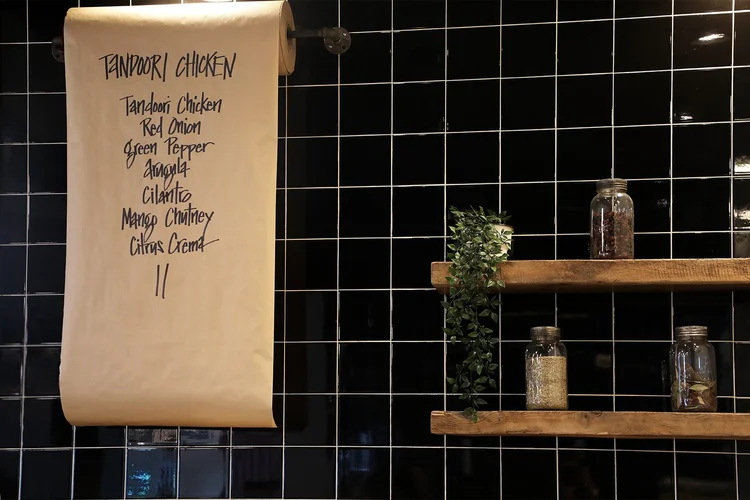 TANDOORI CHICKEN
Tandoori Chicken
Red Onion
Green Pepper
Arugula
Cilantro
Mango Chutney
Citrus Crema
11